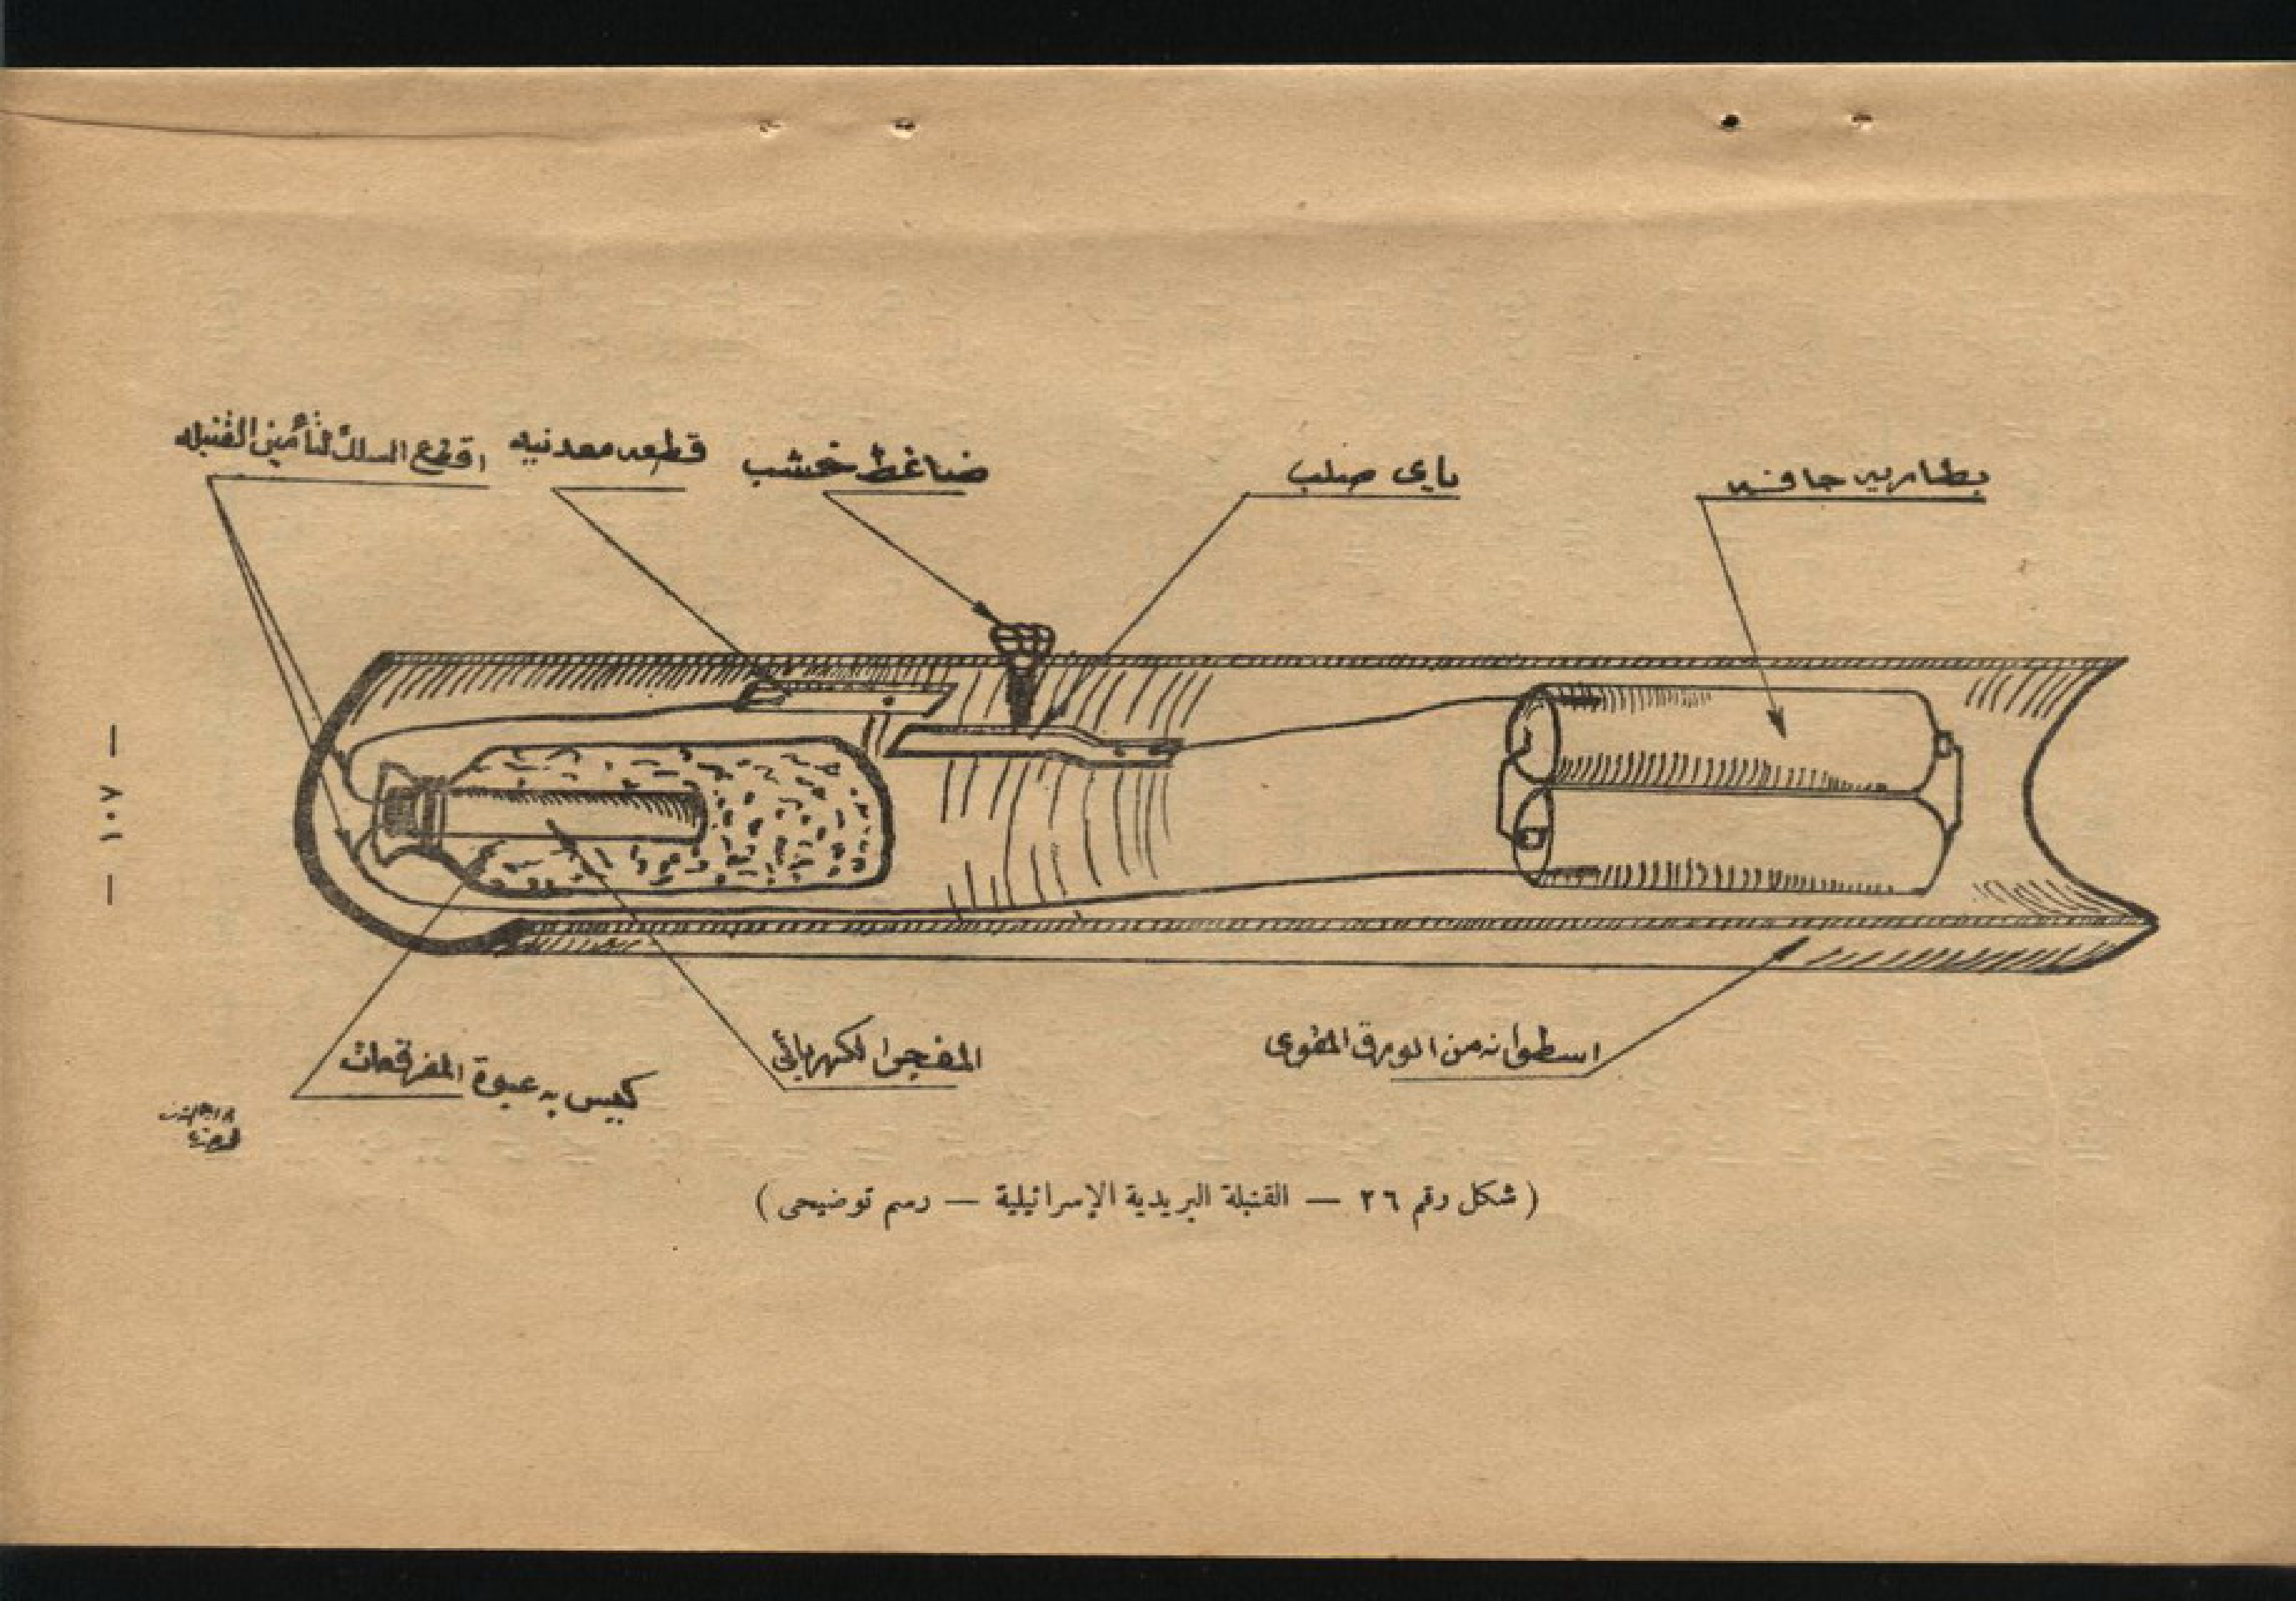 اقطع السلك لتأمين القنبله
قطعه معدنيه
ضاغط خشب
ياى صلب
بطاريه جافه
— ١٠٧ —
كيس به عبوة المفرقعات
المفجر الكهربائى
اسطوانه من الورق المقوى
( شكل رقم ٢٦ — القنبلة البريدية الإسرائيلية — رسم توضيحى )